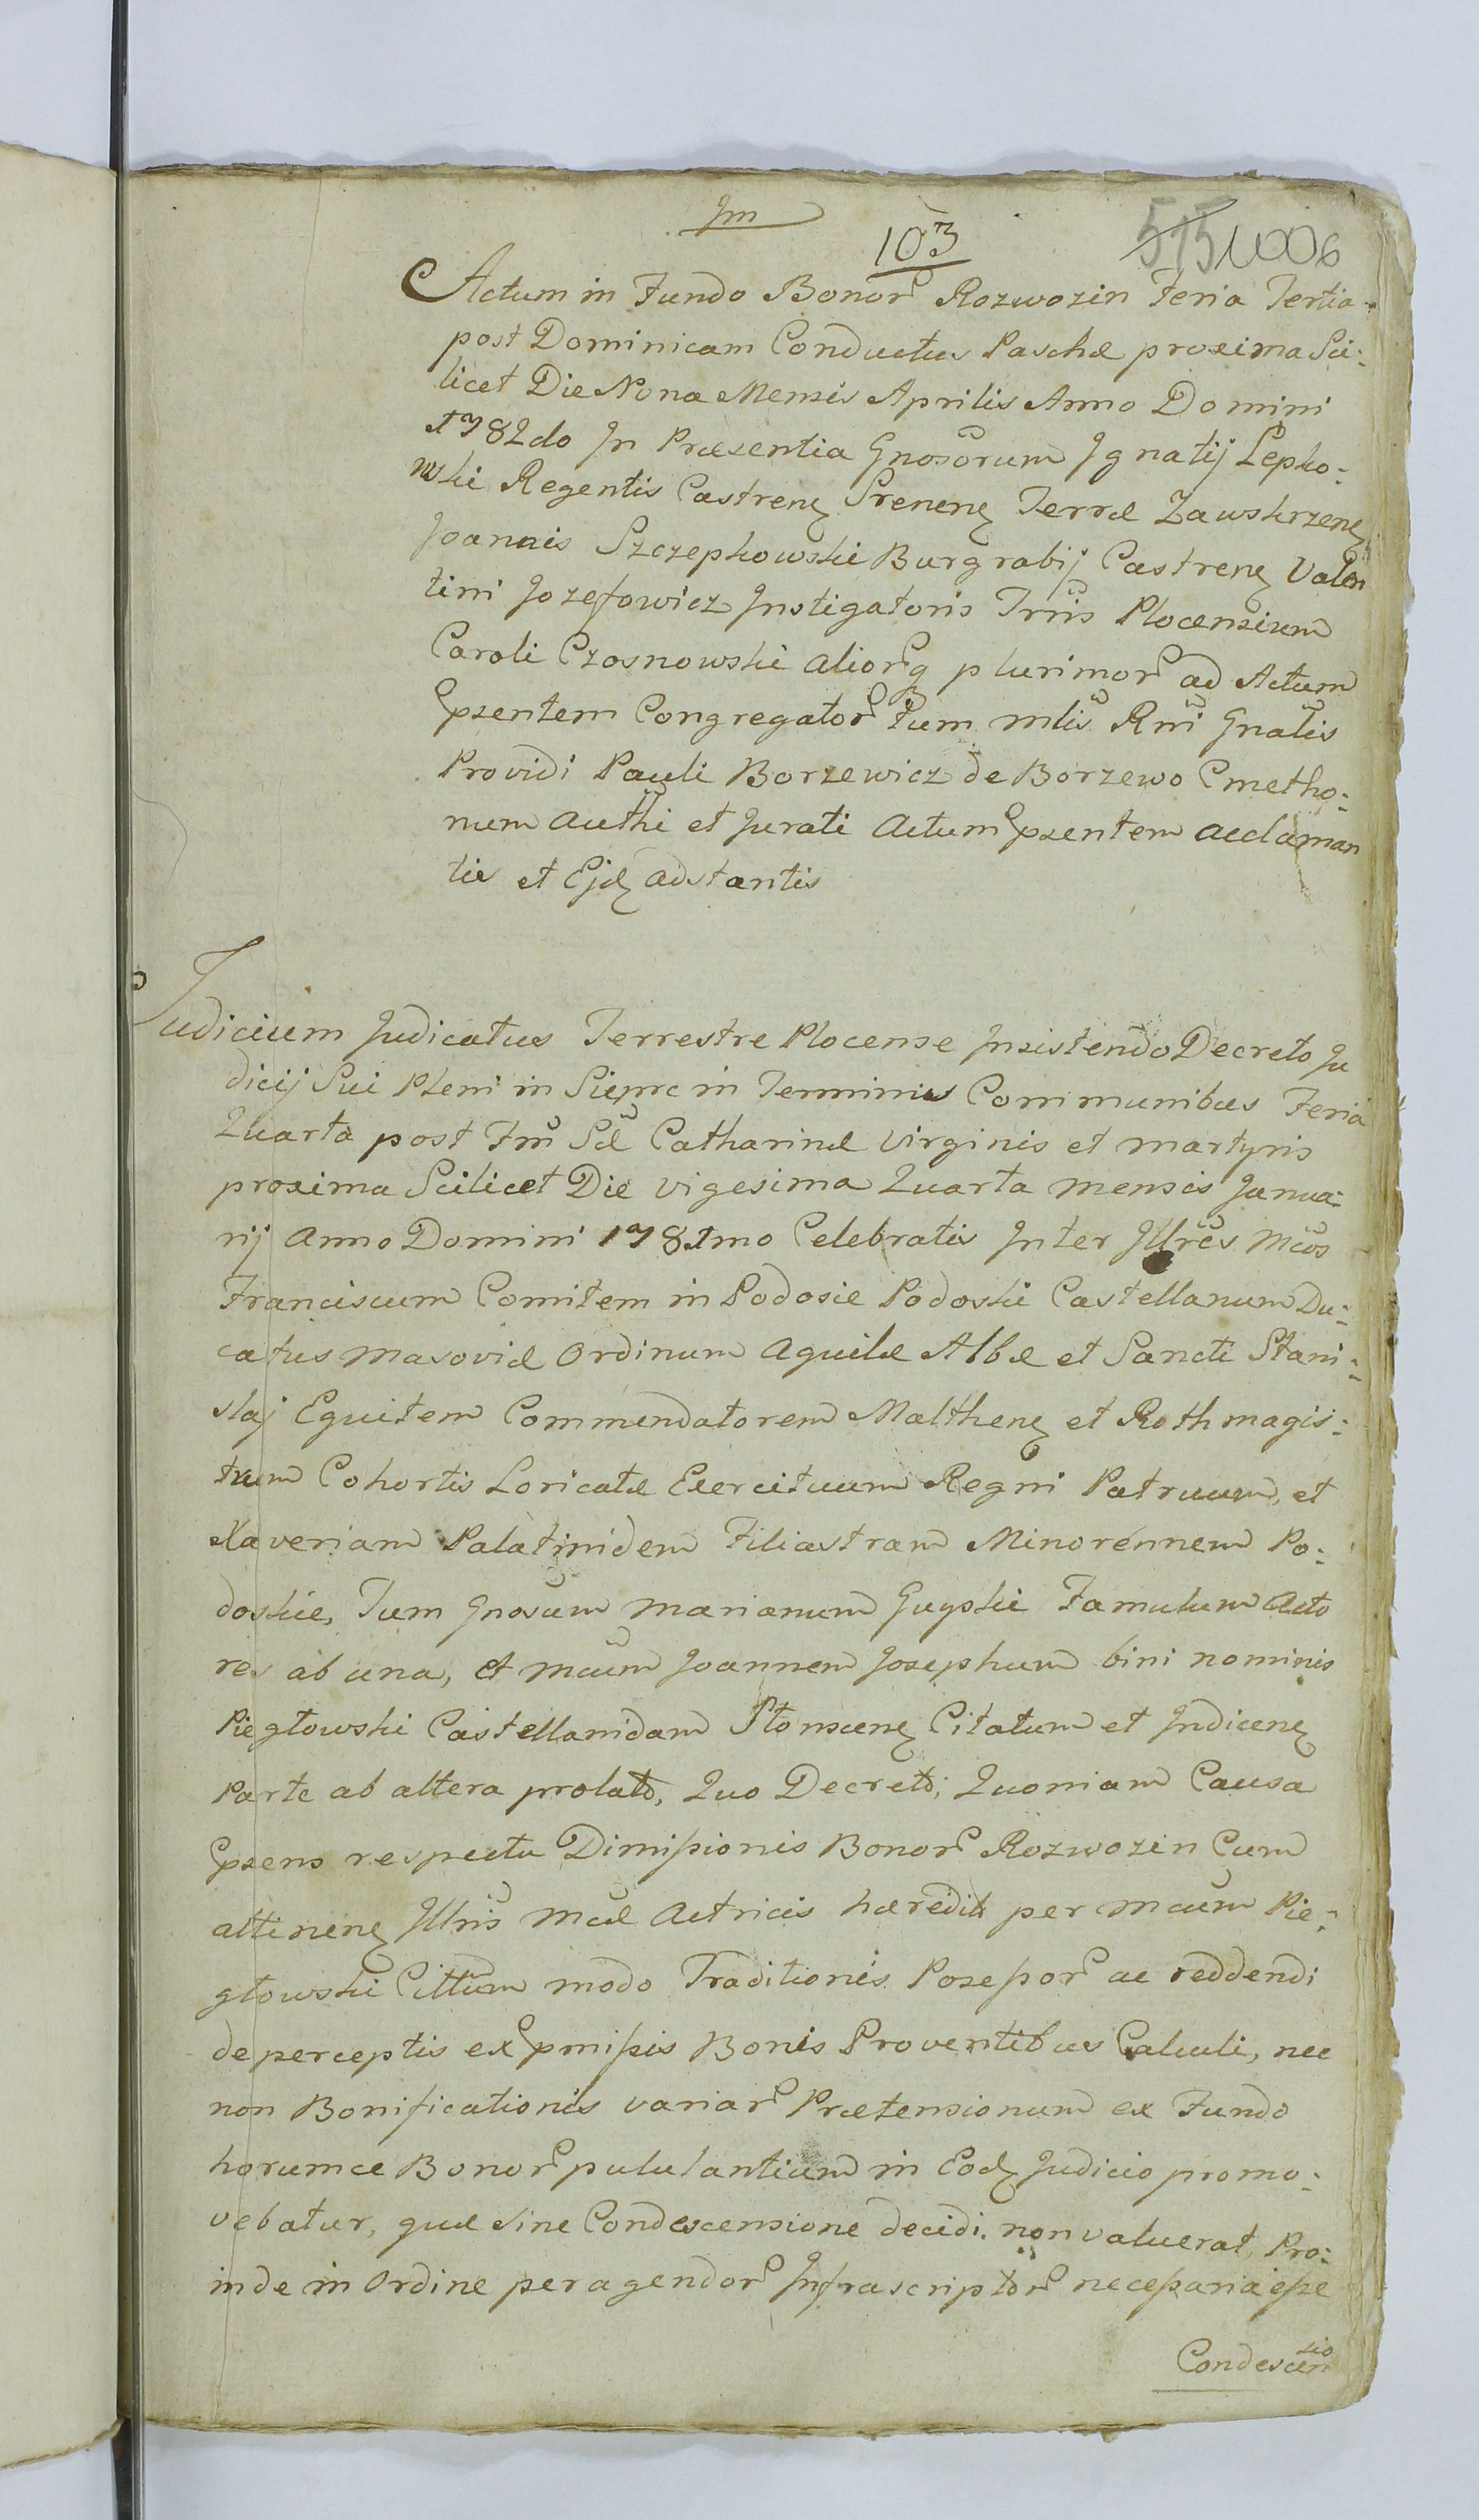 Im
103
515 1006
Actum in Fundo Bonor Rozwozin Feria Tertia
post Dominicam Conductus Paschæ proxima Sci:
licet Die Nona Mensis Aprilis Anno Domini
1782do In Præsentia Gnosorum Ignatij Lepko:
wski Regentis Castren Srenen Terræ Zawskrzen
Joannis Szczepkowski Burgrabij Castren Valen
tini Jozefowicz Instigatoris Trris Plocensium
Caroli Czosnowski aliorq plurimor ad Actum
Psentem Congregator tum mlis Rni Gnalis
Providi Pauli Borzewicz de Borzewo Cmetho:
num Authi et Jurati Actum Psentem acclaman
tis et Ejd adstantis
Judicium Judicatus Terrestre Plocense Insistendo Decreto Ju
dicij Sui Pleni in Sieprc in Terminis Communibus Feria
Quarta post Fm Sæ Catharinæ Virginis et martyris
proxima Scilicet Die vigesima Quarta mensis Janua:
rij Anno Domini 1781mo Celebratis Inter Illres Mcos
Franciscum Comitem in Podosie Podoski Castellanum Du:
catus Masoviæ Ordinum Aquilæ Albæ et Sancti Stani:
slaj Equitem Commendatorem Malthen et Rothmagis:
trum Cohortis Loricatæ Exercituum Regni Patruum, et
Xaveriam Palatinidem Filiastram Minorennem Po:
doskie, Tum Gnosum Marianum Guyski Famulum Acto
res ab una, et mcum Joannem Josephum bini nominis
Piegłowski Castellanidam Słonscen Citatum et Indicen
Parte ab altera prolato, Quo Decreto; Quoniam Causa
Psens respectu Dimissionis Bonor Rozwozin Cum
attinen Illris Mcæ Actricis hæredit per mcum Pie:
głowski Cittum modo Traditionis Possessor ac reddendi
de perceptis ex Pmissis Bonis Proventibus Calculi, nec
non Bonificationis variar Prætensionum ex Fundo
horumce Bonor pululantium in Eod Judicio promo:
vebatur, quæ sine Condescensione decidi non valuerat, Pro:
inde in Ordine peragendor Infrascriptor necessaria esse
Condescensio